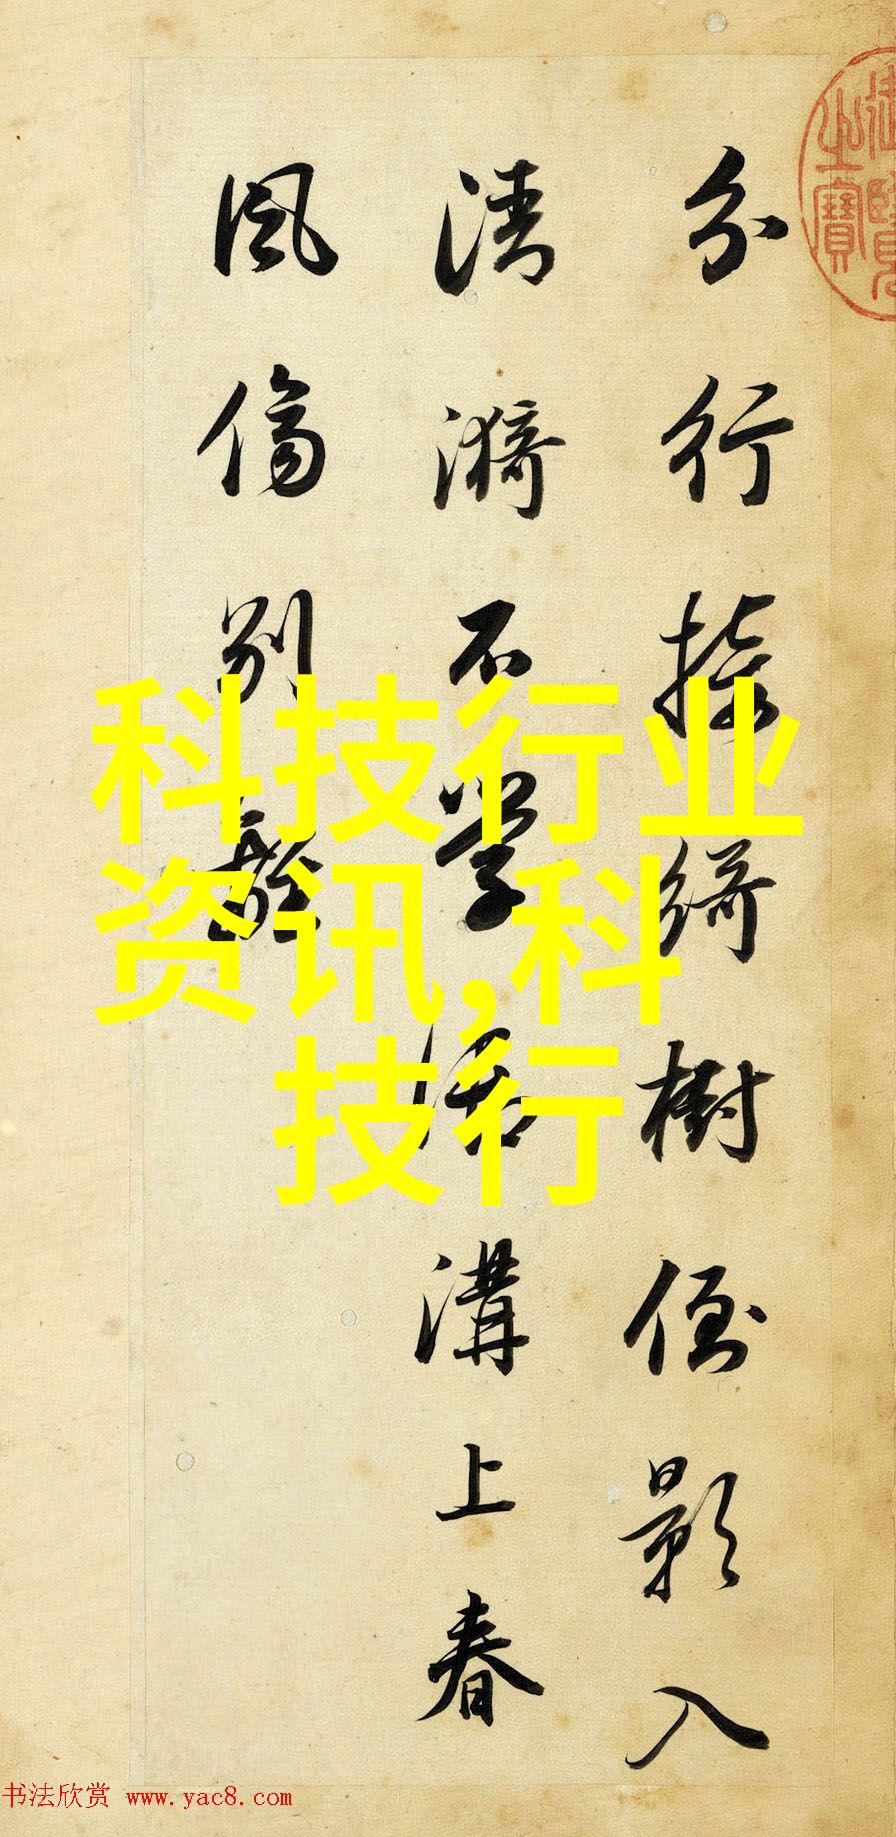 分行接綺樹倒影入
清漪不學御溝上春
風傷別離
御覽
之寶
科技行业
资讯,科
技行
书法欣赏 www.yac8.com